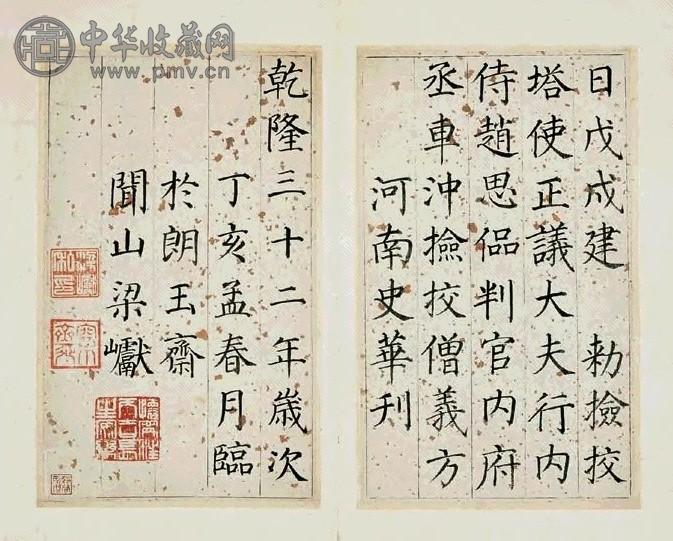 中华收藏网
www.pmv.cn
日戊戌建 勅撿挍
塔使正議大夫行内
侍趙思侣判官内府
丞車沖撿挍僧義方
河南史華刋
乾隆三十二年歲次
丁亥孟春月臨
於朗玉齋
聞山梁巘